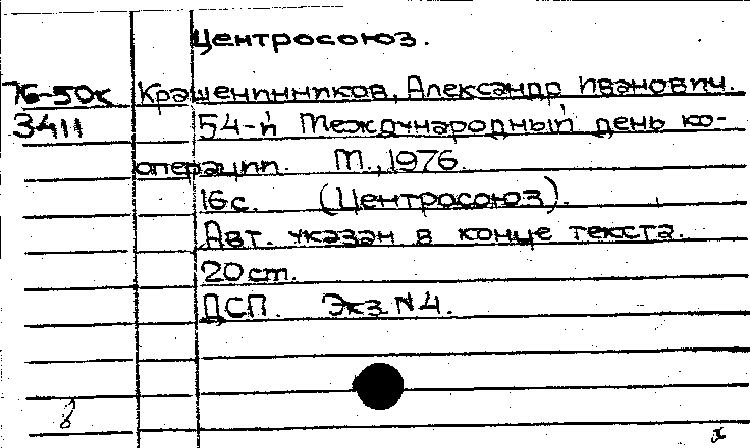 Центросоюз.
76-50к Крашенинников, Александр Иванович.
3411 54-й Международный день ко-
операции. М., 1976.
16с. (Центросоюз).
Авт. указан в конце текста.
20 см.
ДСП. Экз. N4.